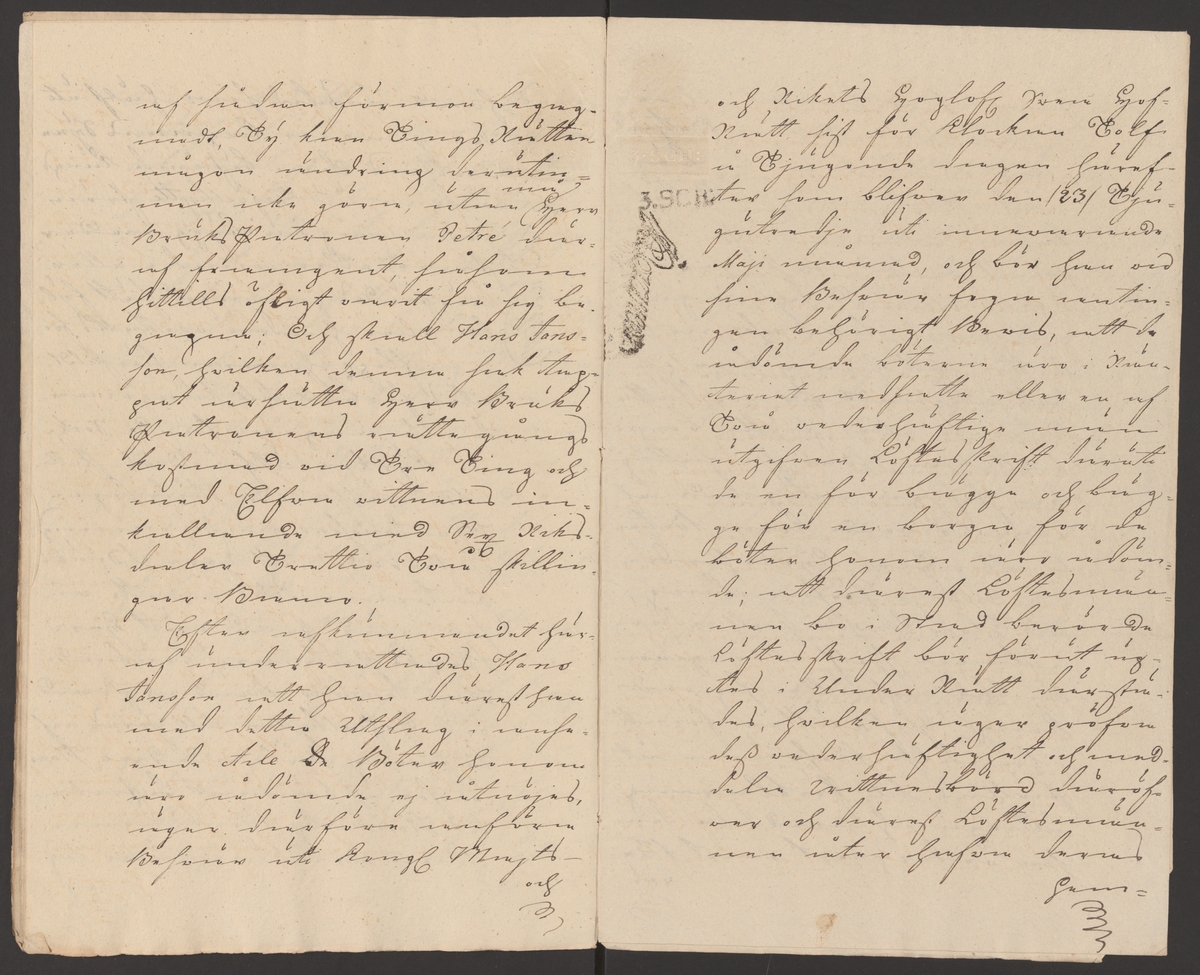 af sådan förmon begag-
nadt, Ty kan Tings Rätten
någon ändring derutin=
nan icke göra, utan må Herr
Bruks Patronen Petré där-
af framgent, såsom
hittills öfligt varit få sig be-
gagna; Och skall Hans Jans-
son, hvilken denna sak tap-
pat ersätta Herr Bruks
Patronens rättegångs
kostnad vid Tre Ting och
med Elfva vittnens in-
kallande med Sex Riks-
daler Trettio Två skillin-
gar Banco.
Efter afkunnandet här-
af underrättades Hans
Jansson att han därest han
med detta Utslag i anse-
ende till De Böter honom
äro ådömde ej åtnöjes,
äger därföre anföra
Besvär uti Kongl Majts
och
och Rikets Höglofl Svea Hof-
Rätt sist för klockan Tolf
å Tjugonde dagen häref-
ter som blifver den /23/ Tju-
gutredje uti innevarande
Maji månad, och bör han vid
sine Besvär foga antin-
gen behörigt Bevis, att de
ådömde böterne äro i Rän-
teriet nedsatte eller en af
Två vederhäftige män
utgifven Löftesskrift däruti
de en för bägge och bäg-
ge för en borga för de
böter honom äro ådöm-
de; att därest Löftesmän-
nen bo i Stad berörde
Löftesskrift bör förut up-
tes i Under Rätt därstä-
des, hvilken äger pröfva
dess vederhäftighet och med-
dela vittnesbörd däröf-
ver och därest Löftesmän-
nen åter hafva deras
hem=